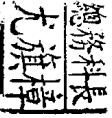 總務科長
尤旗樟